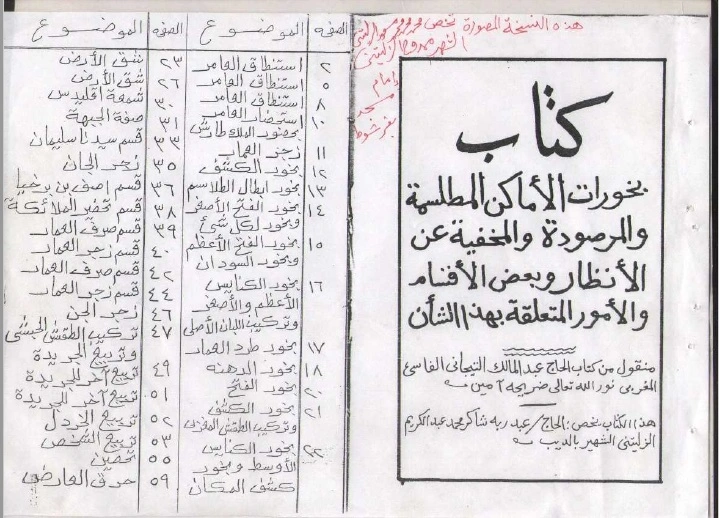 هذه النسخة المصورة تخص محمد
الشهير
إمام
مسجد
بفرشوط
كتاب
بخورات الأماكن المطلسمة
والمرصودة والمخفية عن
الأنظار وبعض الأقسام
والأمور المتعلقة بهذا الشأن
منقول من كتاب الحاج عبد المالك التيجانى الفاسى
المغربى نور الله تعالى ضريحه آمين
هذا الكتاب يخص: الحاج/عبد ربه شاكر محمد عبد الكريم
الزليتنى الشهير بالديب
الصفحه الموضوع
٢ استنطاق العامر
٥ استنطاق العامر
٨ استنطاق العامر
١٠ استحضار العامر
بحضور الملك طارش
١١ زجر العمار
١٢ بخور الكشف
١٣ بخور ابطال الطلاسم
١٤ بخور الفتح الأصغر
وبخور لكل شئ
١٥ بخور الفتح الأعظم
وبخور السودان
١٦ بخور الكنايس
الأعظم والأصغر
وتركيب اللبان الأصلى
١٧ بخور طرد العمار
١٨ بخور الدهنه
٢٠ بخور الفتح
٢١ بخور الكشف
وتركيب الطقش المغربى
٢٢ بخور الكنايس
الأوسط وبخور
كشف المكان
الصفحه الموضوع
٢٣ شق الأرض
٢٦ شق الأرض
٣٠ شمعة اقليدس
٣١ صفة الجبهة
٣٣ قسم سيدنا سليمان
٣٥ زجر الجان
٣٦ قسم اصف بن برخيا
٣٨ قسم تحضير الملائكة
٣٩ قسم صرف العمار
٤٠ قسم زجر العمار
٤٢ قسم صرف العمار
٤٤ قسم زجر العمار
٤٦ زجر الجن
٤٧ تركيب الطقش الحبشى
وتربيع الجريدة
٤٩ تربيع آخر للجريدة
٥١ تربيع آخر للجريدة
٥٢ تربيع الخردل
٥٣ تربيع الشخص
٥٥ تحصين
٥٩ حرق العارض